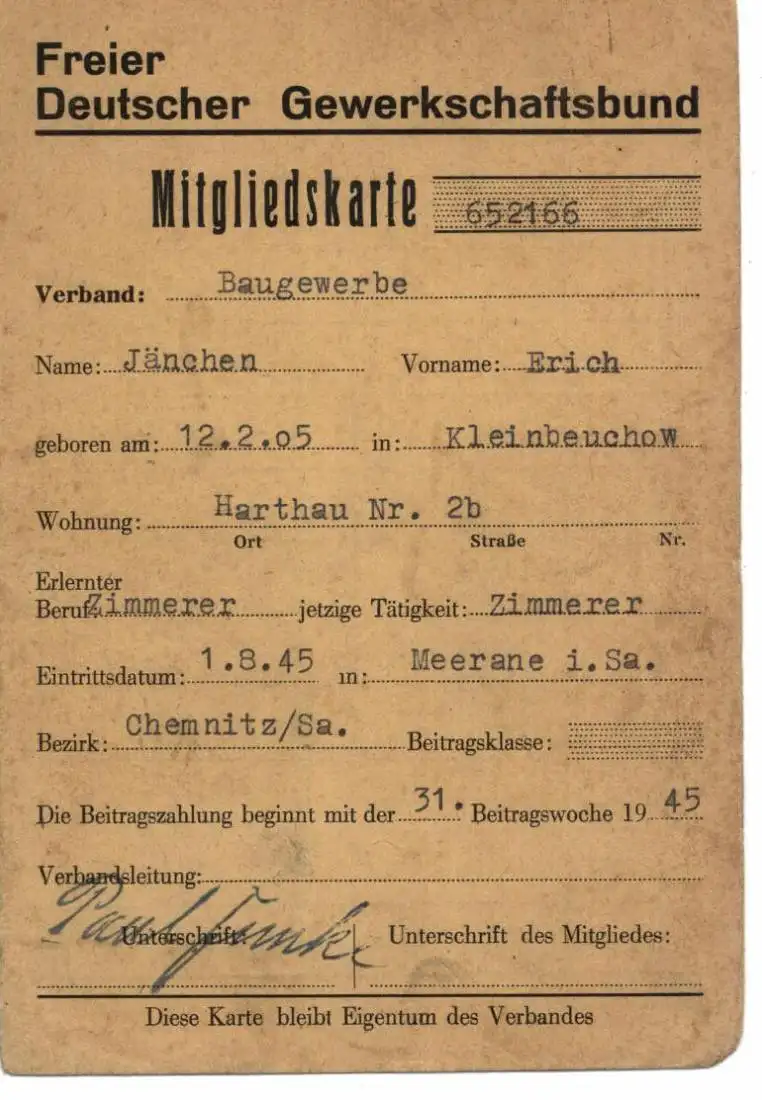 Freier
Deutscher Gewerkschaftsbund
Mitgliedskarte 652166
Verband: Baugewerbe
Name: Jänchen Vorname: Erich
geboren am: 12.2.05 in: Kleinbeuchow
Wohnung: Harthau Nr. 2b
Ort Straße Nr.
Erlernter
Beruf: Zimmerer jetzige Tätigkeit: Zimmerer
Eintrittsdatum: 1.8.45 in: Meerane i.Sa.
Bezirk: Chemnitz/Sa. Beitragsklasse:
Die Beitragszahlung beginnt mit der 31. Beitragswoche 19 45
Verbandsleitung:
Paul
Unterschrift Unterschrift des Mitgliedes:
Diese Karte bleibt Eigentum des Verbandes